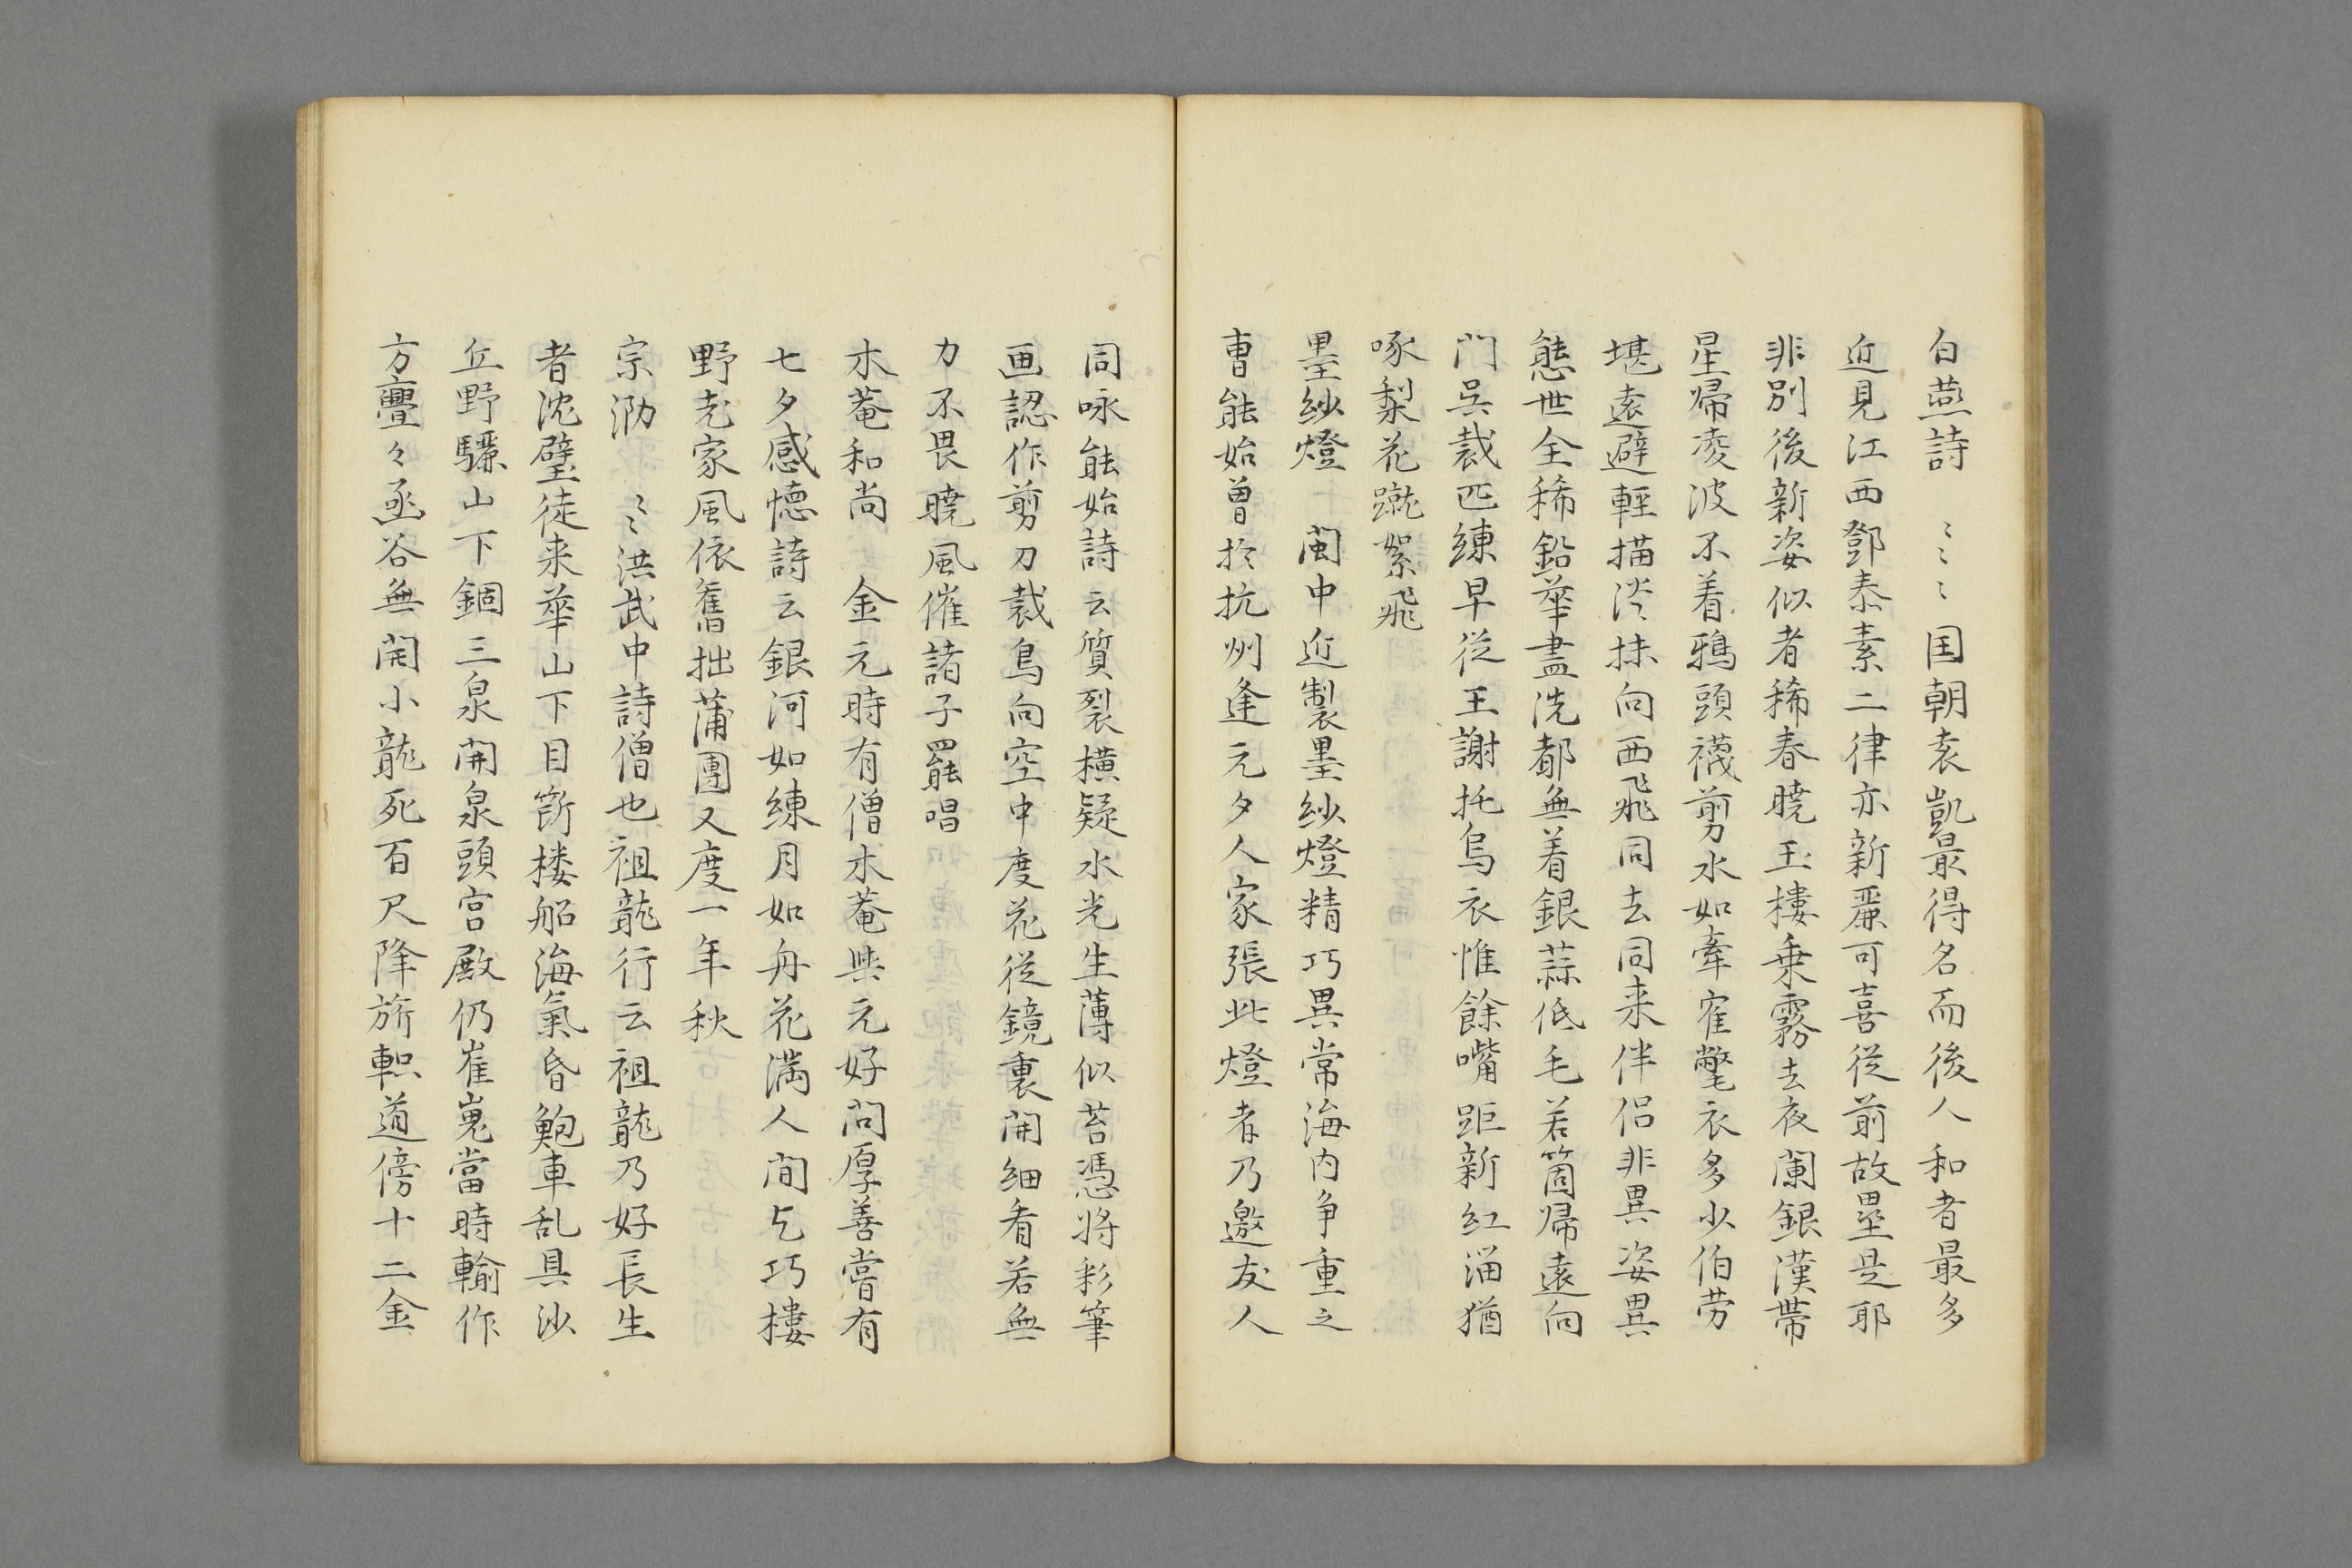 白燕詩　〻〻〻国朝袁凱最得名而後人和者最多
近見江西鄧泰素二律亦新麗可喜従前故壘是耶
非別後新姿似者稀春曉玉樓乗霧去夜闌銀漢帯
星帰凌波不着鴉頭襪剪水如牽隺氅衣多少伯労
堪遠避輕描淡抹向西飛同去同来伴侶非異姿異
態世全稀鉛華盡洗都無着銀蒜低毛若箇帰遠向
門呉裁匹練早従王謝托烏衣惟餘嘴距新紅溜猶
啄梨花蹴絮飛
墨紗燈　閩中近製墨紗燈精巧異常海内争重之
曹能始曽扵抗州逢元夕人家張此燈者乃邀友人
同咏能始詩云質裂横疑水光生薄似苔憑将彩筆
画認作剪刀裁鳥向空中度花従鏡裏開细看若無
力不畏曉風催諸子罷唱
木菴和尚　金元時有僧木菴與元好問厚善嘗有
七夕感懐詩云銀河如練月如舟花満人間乞巧樓
野老家風依舊拙蒲團又度一年秋
宗泐　〻〻洪武中詩僧也祖龍行云祖龍乃好長生
者沈璧徒来華山下目斷楼船海氣昏鮑車乱具沙
丘野驪山下錮三泉開泉頭宮殿仍崔嵬當時輸作
方亹々亟谷無開小龍死百尺降旂軹道傍十二金